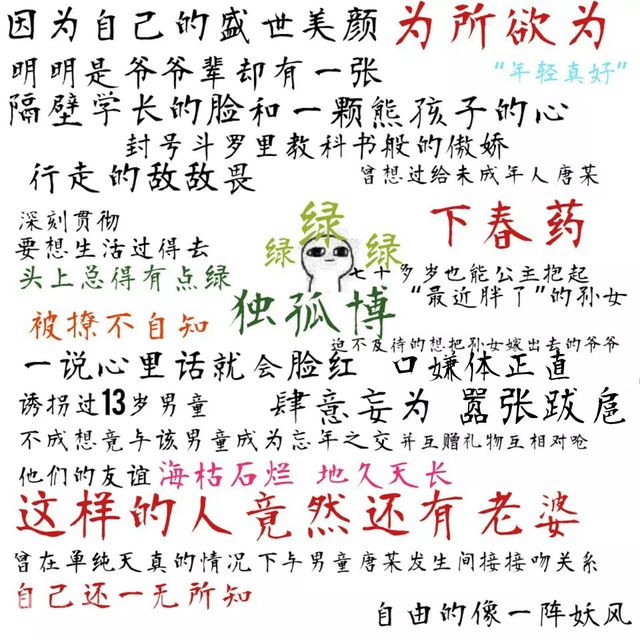 因为自己的盛世美颜为所欲为
明明是爷爷辈却有一张
“年轻真好”
隔壁学长的脸和一颗熊孩子的心
封号斗罗里教科书般的傲娇
行走的敌敌畏
曾想过给未成年人唐某
下春药
深刻贯彻
要想生活过得去
头上总得有点绿
绿
绿
绿
七十多岁也能公主抱起
“最近胖了”的孙女
被撩不自知
独孤博
迫不及待的想把孙女嫁出去的爷爷
一说心里话就会脸红
口嫌体正直
诱拐过13岁男童
肆意妄为
嚣张跋扈
不成想竟与该男童成为忘年之交并互赠礼物互相对呛
他们的友谊海枯石烂 地久天长
这样的人竟然还有老婆
曾在单纯天真的情况下与男童唐某发生间接接吻关系
自己还一无所知
自由的像一阵妖风